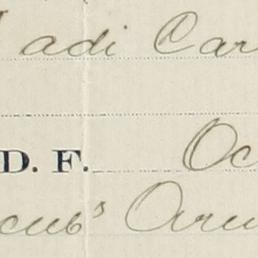 adi Car
D. F. Oc
cub's Aru